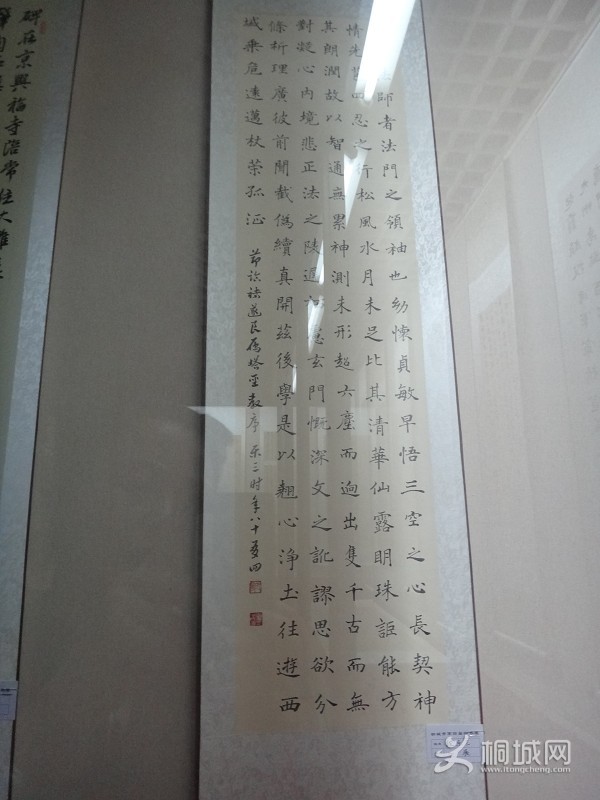 師者法門之領袖也幼懷貞敏早悟三空之心長契神
情先之行松風水月未足比其清華仙露明珠詎能方
其朗潤故以智通無累神測未形超六塵而逈出隻千古而無
對凝心内境悲正法之陵遲玄門慨深文之訛謬思欲分
條析理廣彼前聞截偽續真開茲後學是以翹心淨土往遊西
域乘危遠邁杖策孤征
節臨褚遂良雁塔聖教序 時年八十又四
碑在京興福寺常住大雅
桐城网
www.itongcheng.com